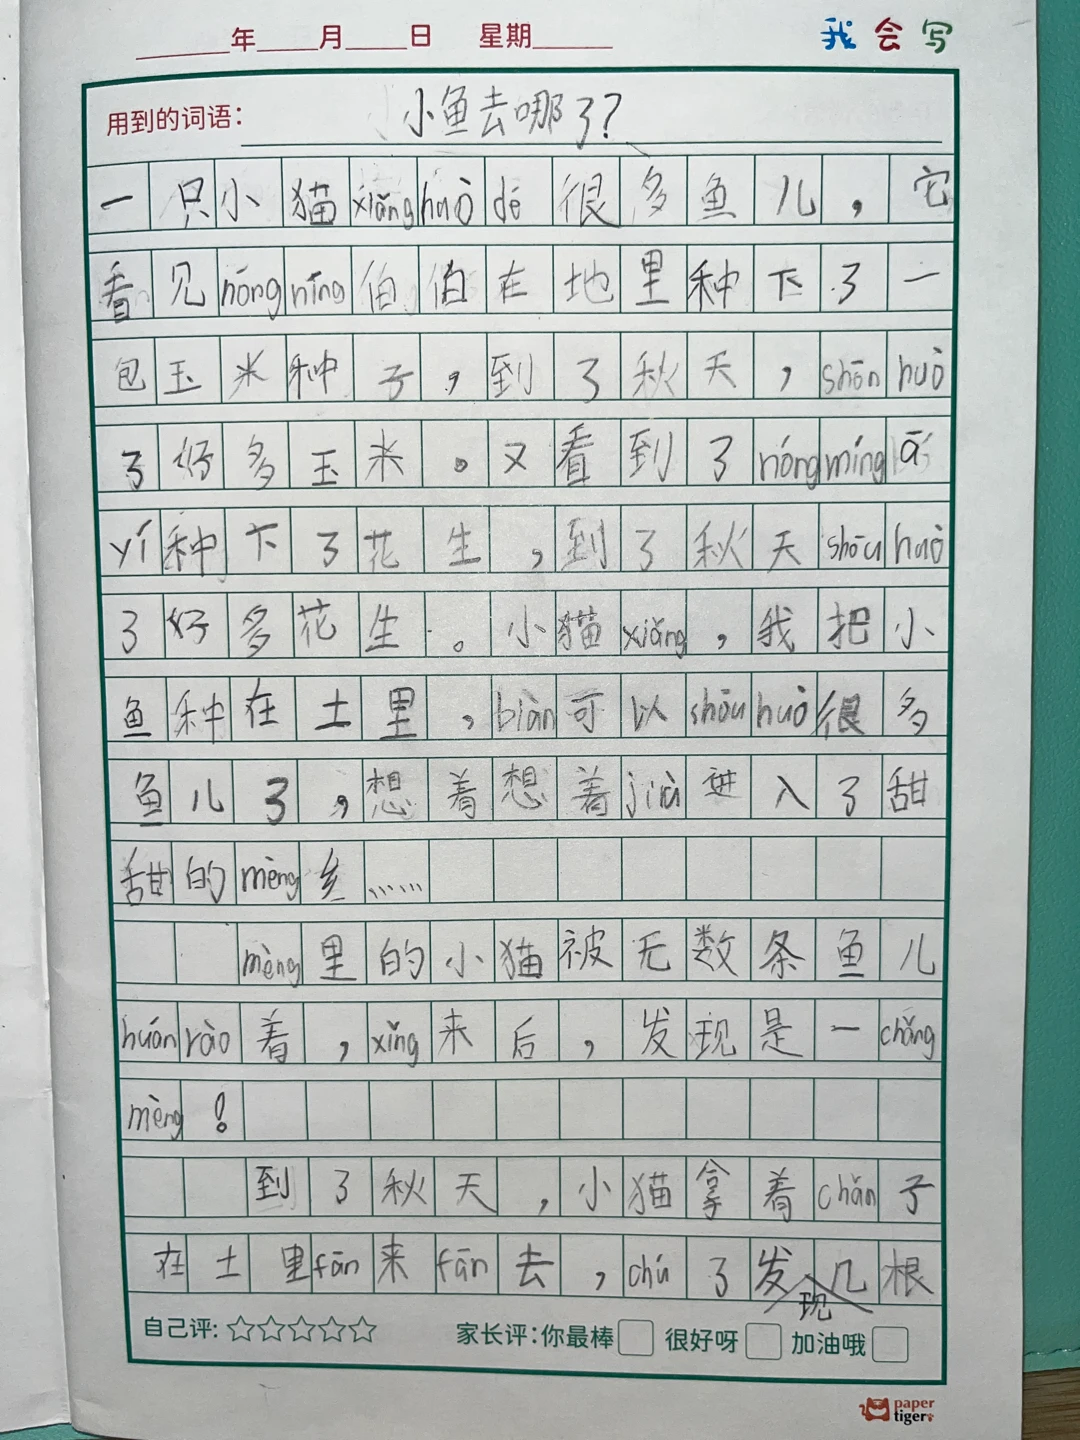 年 月 日 星期
我会写
用到的词语: 小鱼去哪了?
一只小猫xiǎnghuò dé很多鱼儿,它
看见nóngmíng伯伯在地里种下了一
包玉米种子,到了秋天,shōu huò
了好多玉米。又看到了nóngmíng ā
yí种下了花生,到了秋天shōu huò
了好多花生。小猫xiǎng,我把小
鱼种在土里,biàn可以shōu huò很多
鱼儿了,想着想着jiù进入了甜
甜的mèng乡……
mèng里的小猫被无数条鱼儿
huán rào着,xǐng来后,发现是一chǎng
mèng!
到了秋天,小猫拿着chǎn子
在土里fān来fān去,chú了发现几根
自己评: ☆☆☆☆☆ 家长评:你最棒□ 很好呀□ 加油哦□
paper
tiger